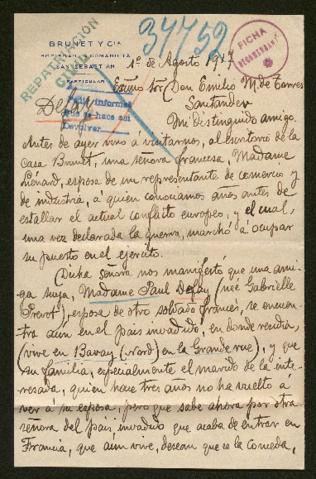 BRUNET Y CIA
SAN SEBASTIAN
PARTICULAR
REPATRIACION
CIVIL
37752
FICHA
1º de Agosto 1917
Excmo Sor Don Emilio M. de Torres
Santander
informes
que se hace sin
Devolver
Delay
Mi distinguido amigo.
Antes de ayer vino a visitarnos, al escritorio de la
Casa Brunet, una señora francesa, Madame
Liénard, esposa de un representante de comercio y
de industria, á quien conociamos años antes de
estallar el actual conflicto europeo, y el cual,
una vez declarada la guerra, marchó á ocupar
su puesto en el ejercito.
Dicha señora nos manifestó que una ami-
ga suya, Madame Paul Delay (née Gabrielle
), esposa de otro soldado francés, se encuen-
tra aún en el pais invadido, en donde
(vive en Bavay (Nord) en la Grande rue), y que
su familia, especialmente el marido de la inte-
resada, quien hace tres años no ha vuelto a
ver a su esposa, pero que sabe ahora por otra
señora del pais invadido que acaba de entrar en
Francia, que aún vive, desean que se la conceda,